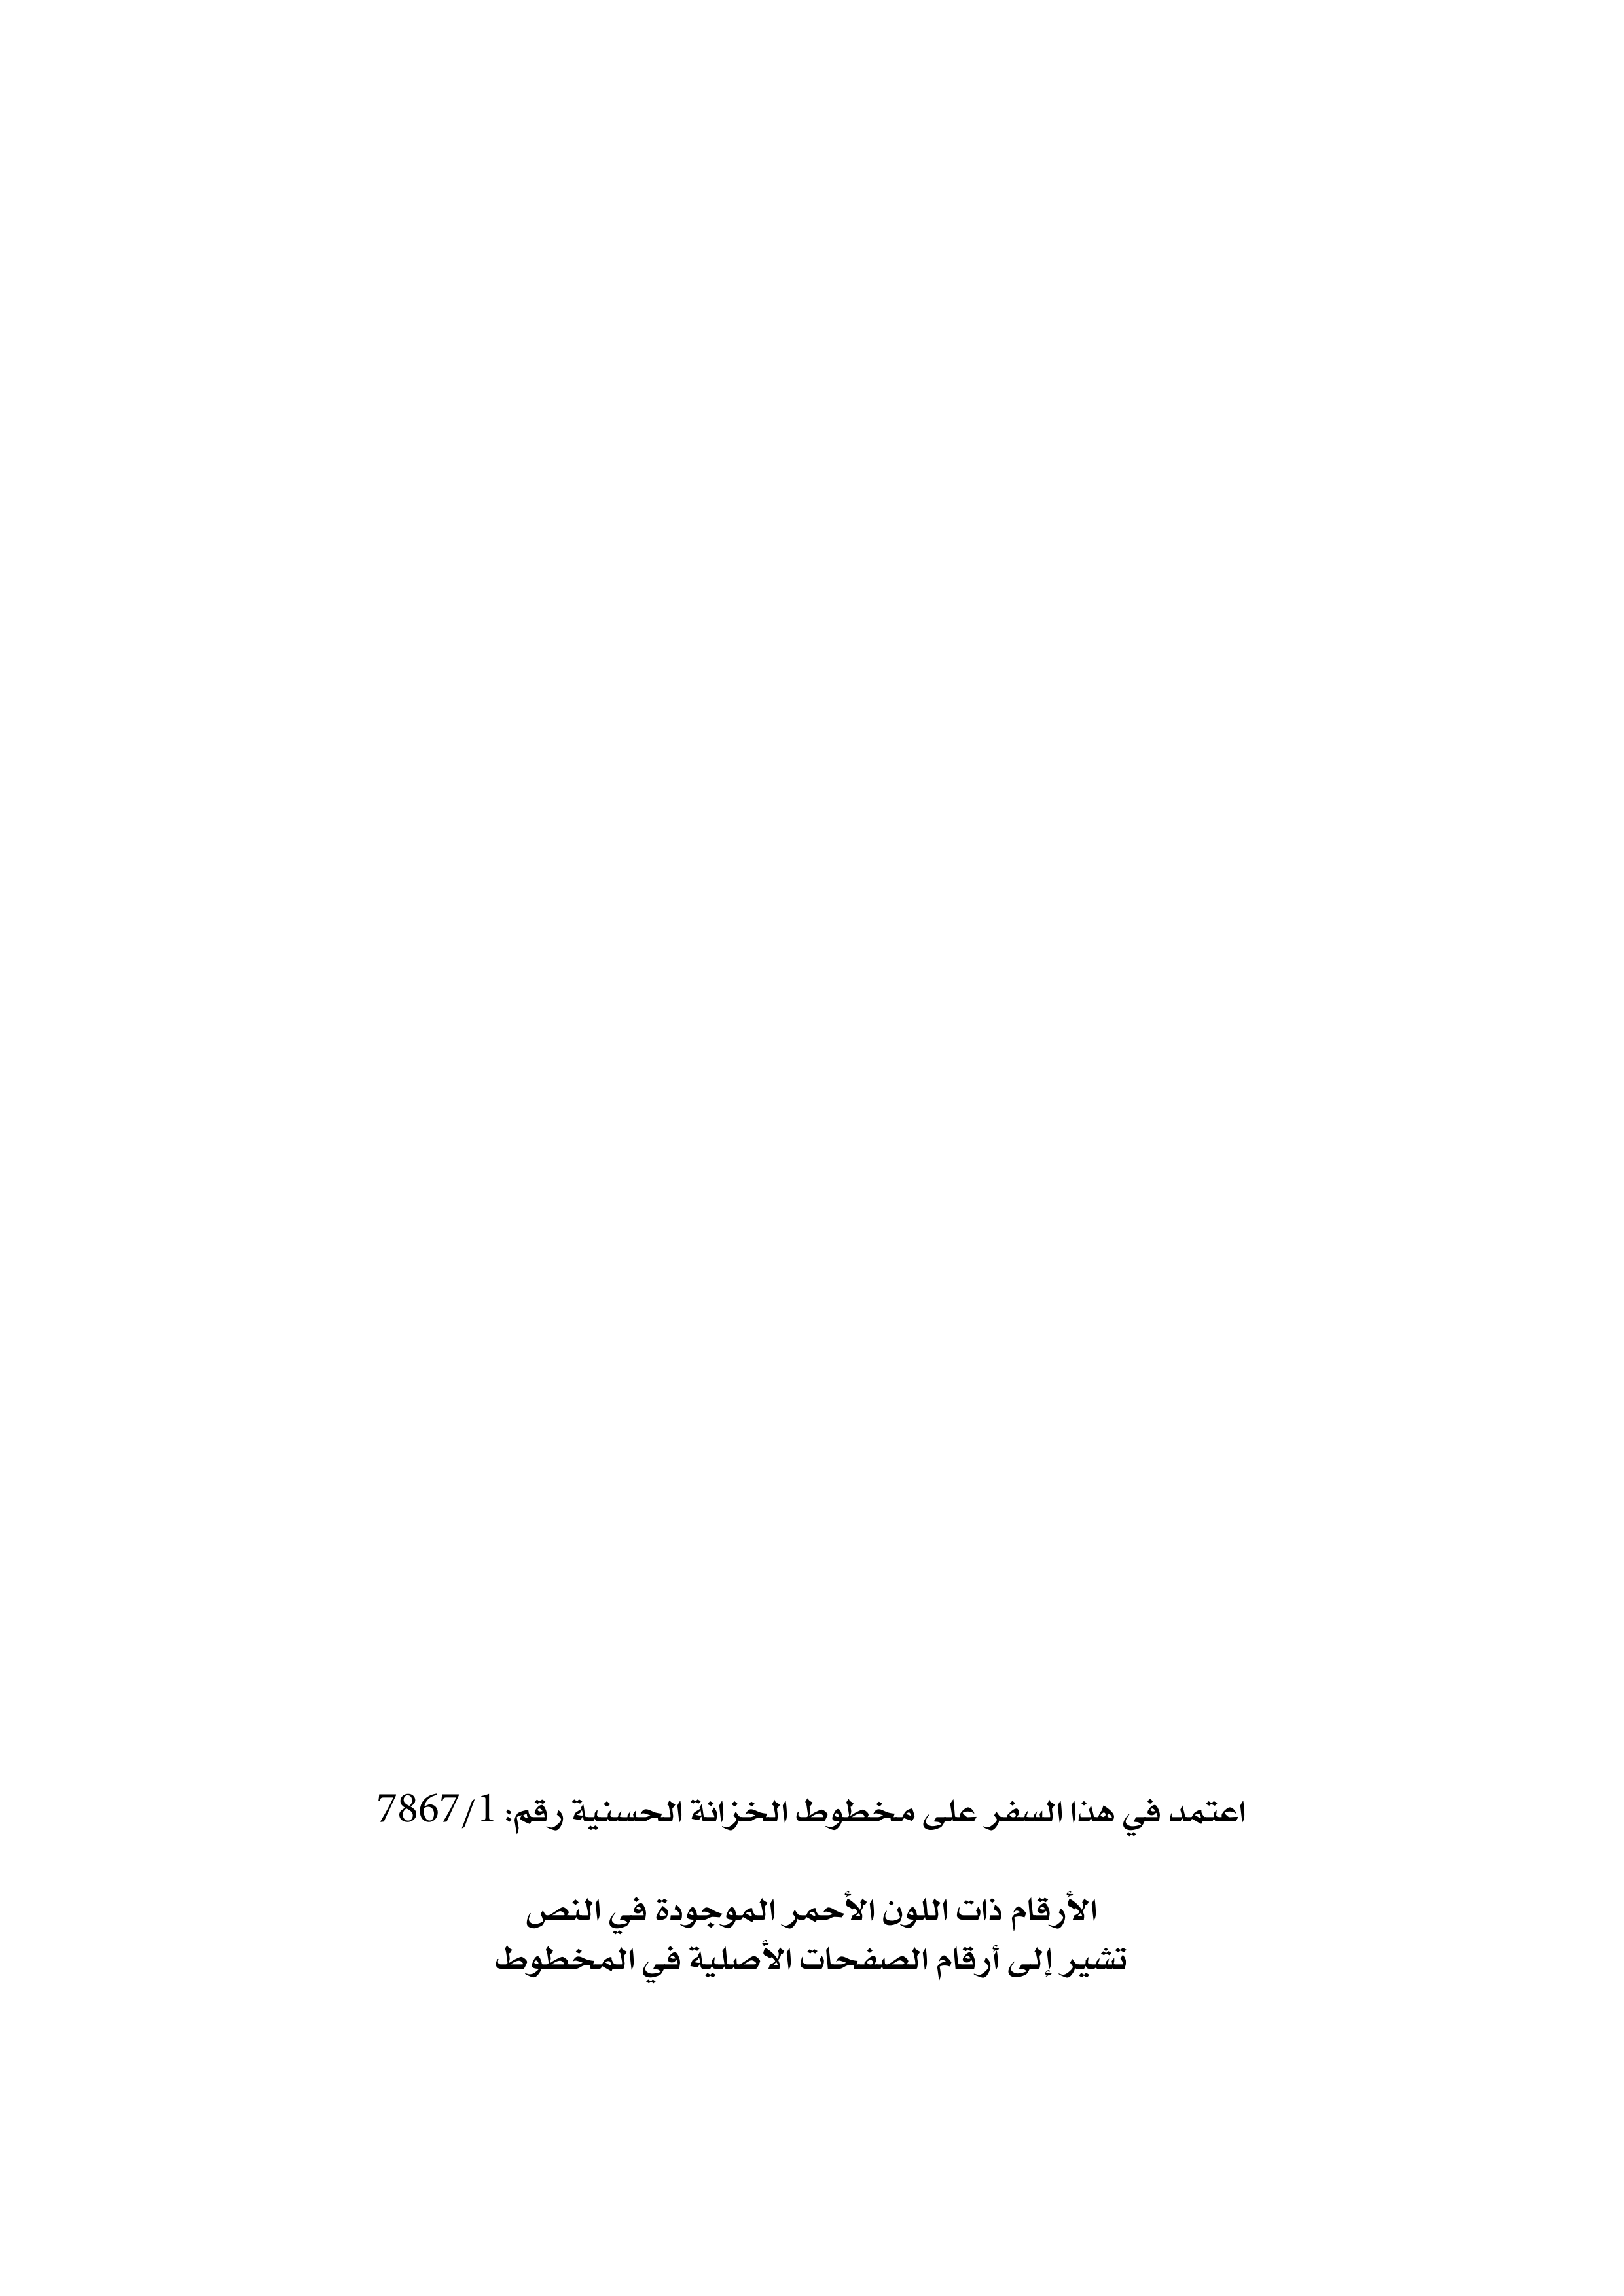 اعتمد في هذا السفر على مخطوط الخزانة الحسنية رقم: 7867/1
الأرقام ذات اللون الأحمر الموجودة في النص
تشير إلى أرقام الصفحات الأصلية في المخطوط